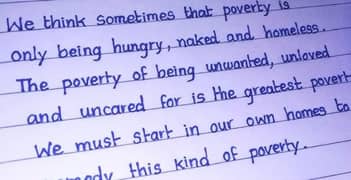 We think sometimes that poverty is
only being hungry, naked and homeless.
The poverty of being unwanted, unloved
and uncared for is the greatest povert
We must start in our own homes to
medy this kind of poverty.